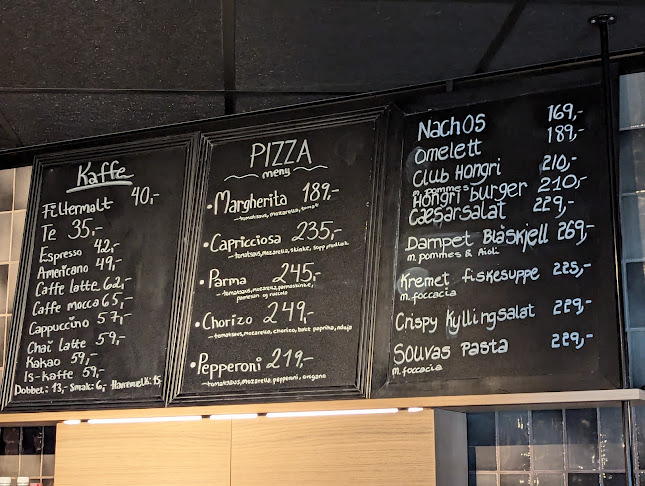 Kaffe
Filtermalt 40,-
Te 35,-
Espresso 42,-
Americano 49,-
Caffe Latte 62,-
Caffe mocca 65,-
Cappuccino 57,-
Chai latte 59,-
Kakao 59,-
Is-kaffe 59,-
Dobbel: 13,- Smak: 6,- Havremelk: 15,-
PIZZA
meny
• Margherita 189,-
- tomatsaus, mozarella, tomat
• Capricciosa 235,-
- tomatsaus, mozarella, skinke, sopp, rødløk
• Parma 245,-
- tomatsaus, mozarella, parmaskinke,
parmesan og ruccola
• Chorizo 249,-
- tomatsaus, mozarella, chorizo, bakt paprika, nduja
• Pepperoni 219,-
- tomatsaus, mozarella, pepperoni, oregano
Nachos 169,-
Omelett 189,-
Club Hongri 210,-
m. pommes
Hongri burger 210,-
Cæsarsalat 229,-
Dampet Blåskjell 269,-
m. pommes & Aioli
Kremet fiskesuppe 225,-
m. foccacia
Crispy Kyllingsalat 229,-
Souvas pasta 229,-
m. foccacia